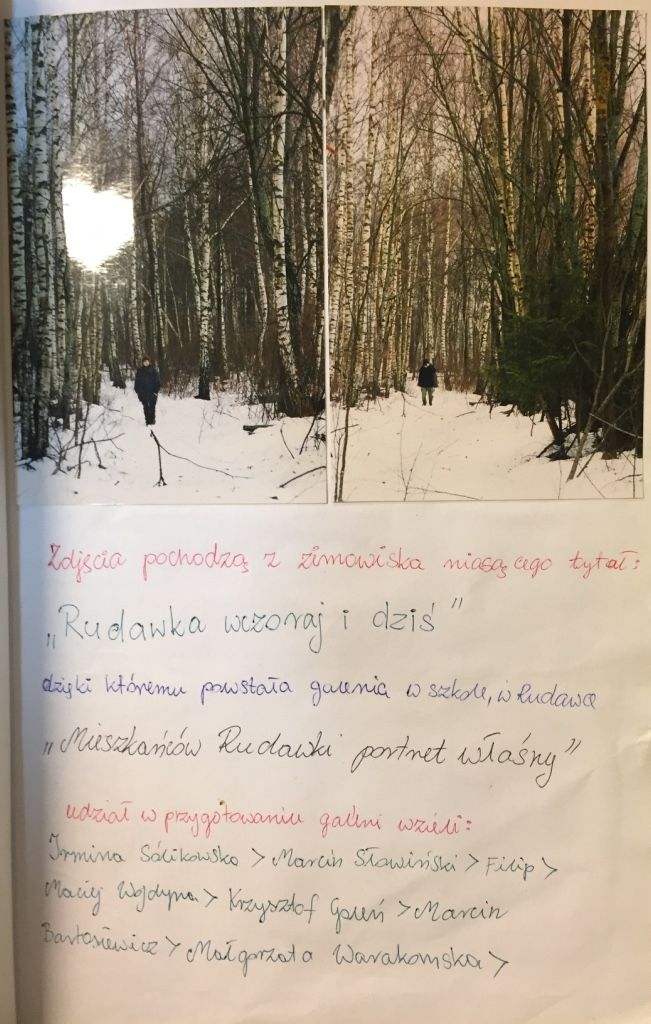 Zdjęcia pochodzą z zimowiska niosącego tytuł:
„Rudawka wczoraj i dziś”
dzięki któremu powstała galeria w szkole, w Rudawce
„Mieszkańców Rudawki portret własny”
udział w przygotowaniu galerii wzieli:
Irmina Sólikowska > Marcin Słowiński > Filip >
Maciej Wojdyna > Krzysztof Goleń > Marcin
Bartosiewicz > Małgorzata Warakomska >